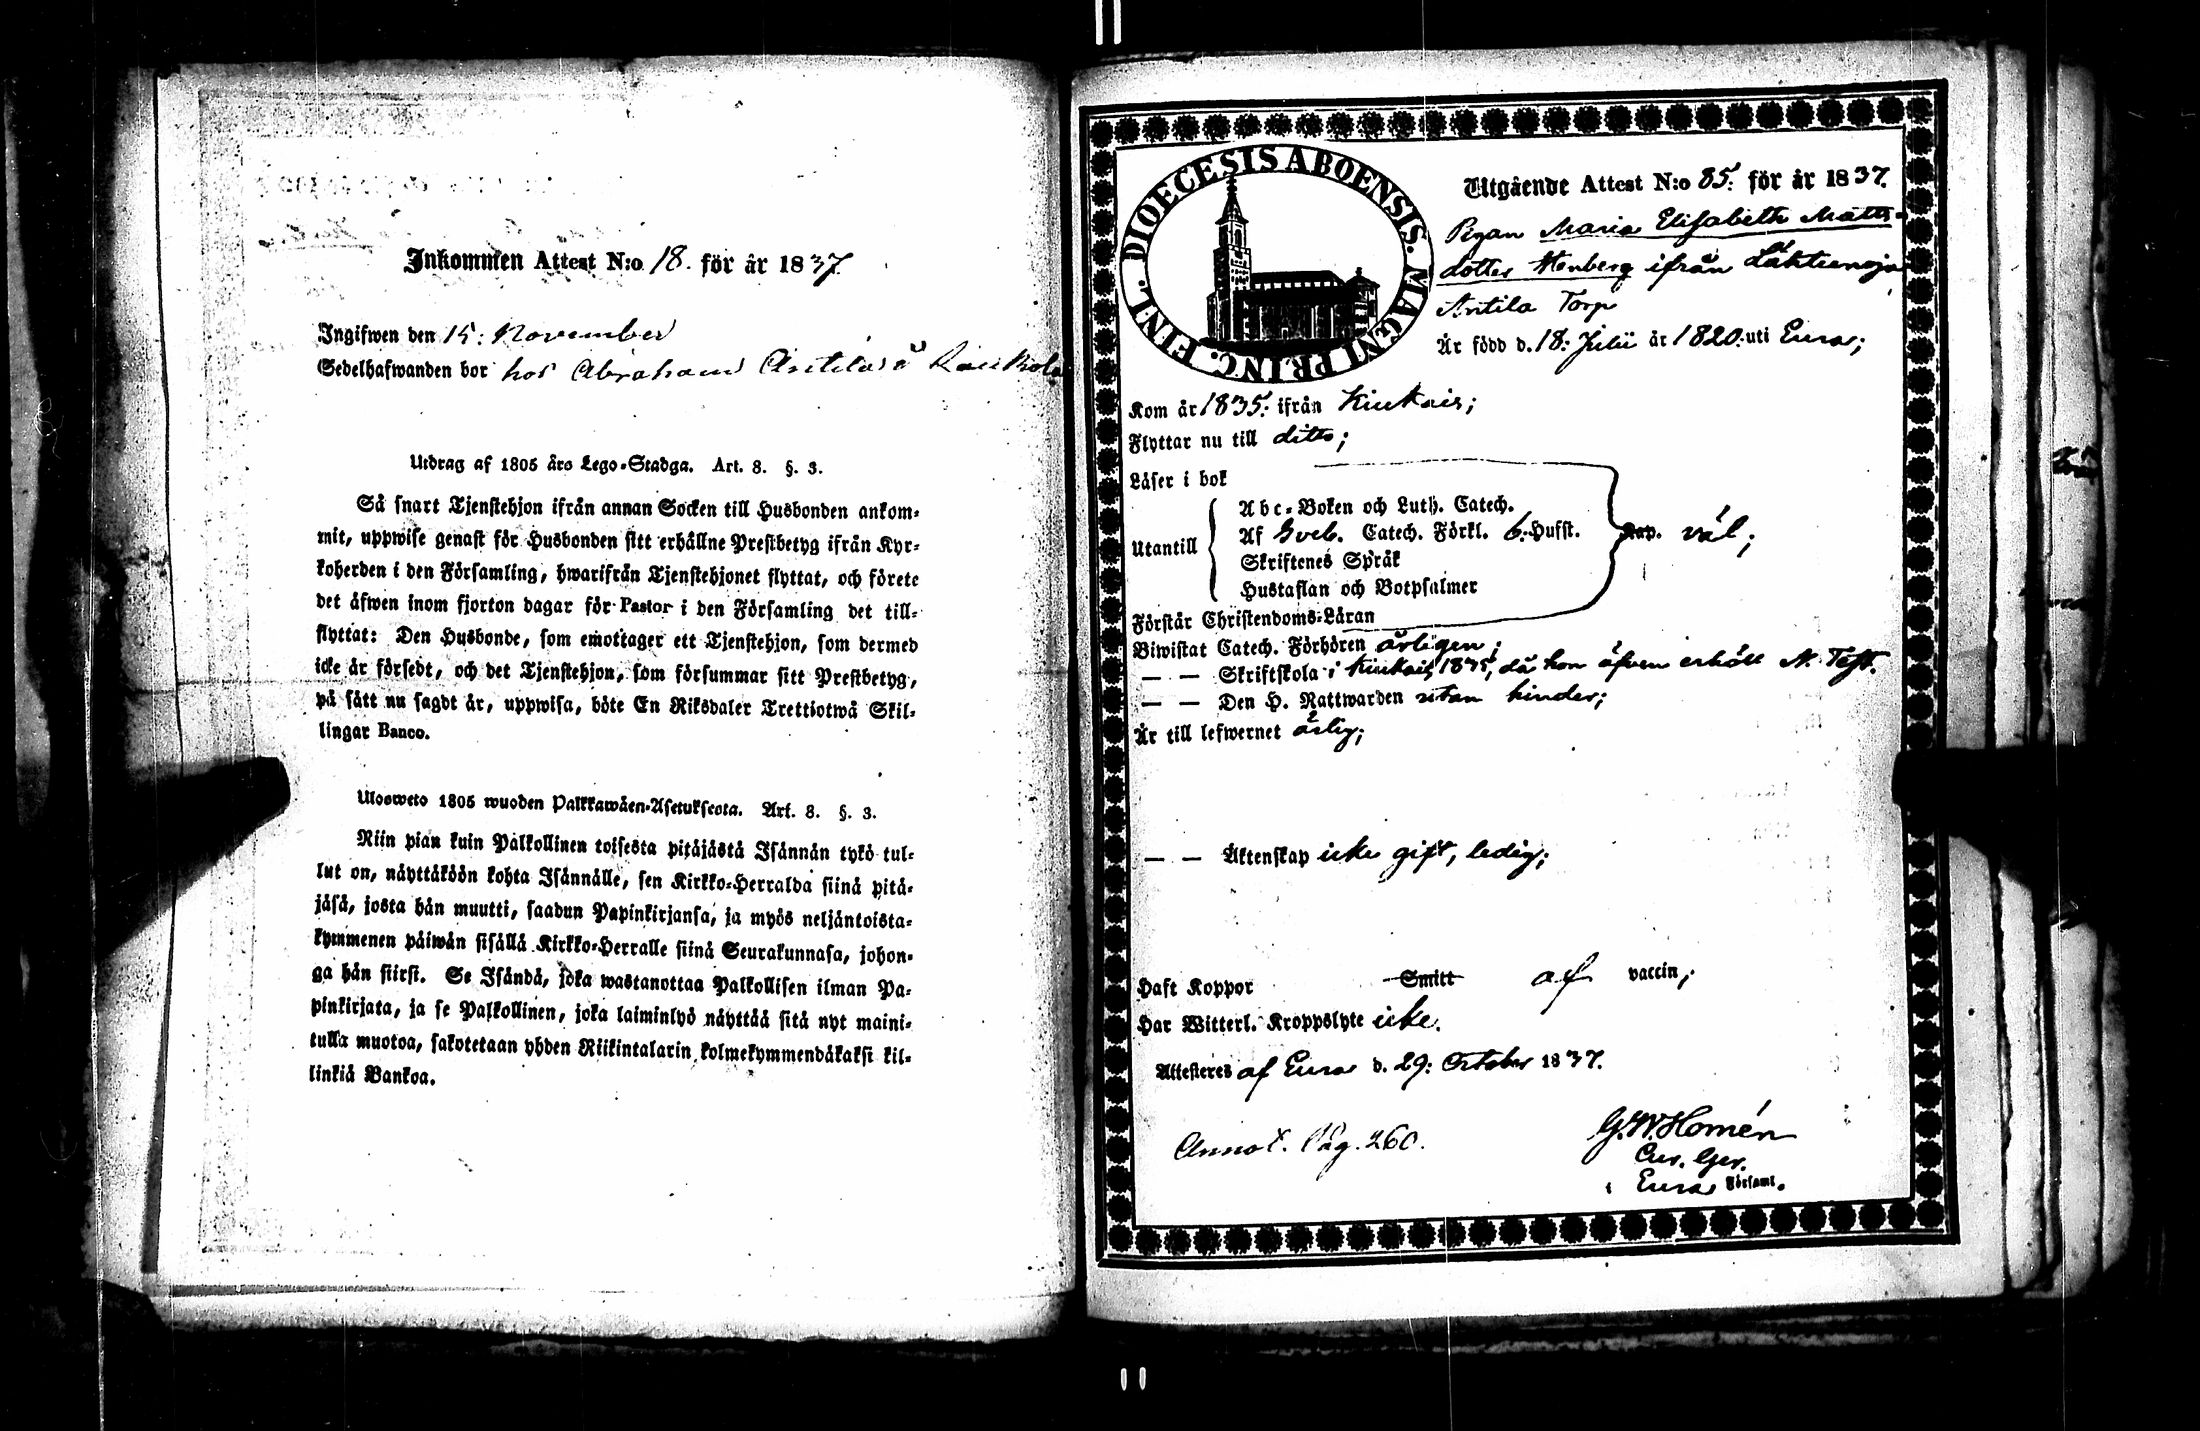 Inkommen Attest N:o 18. för år 1837.
Ingifwen den 15: November
Sedelhafwanden bor hos Abraham Antila å Kaukola
Utdrag af 1805 års Lego-Stadga. Art. 8. §. 3.
Så snart Tjenstehjon ifrån annan Socken till Husbonden ankom-
mit, uppwise genast för Husbonden sitt erhållne Prestbetyg ifrån Kyr-
koherden i den Församling, hwarifrån Tjenstehjonet flyttat, och förete
det äfwen inom fjorton dagar för Pastor i den Församling det till-
flyttat: Den Husbonde, som emottager ett Tjenstehjon, som dermed
icke är försedt, och det Tjenstehjon, som försummar sitt Prestbetyg,
på sätt nu sagdt är, uppwisa, böte En Riksdaler Trettiotwå Skil-
lingar Banco.
Ulosweto 1805 wuoden Palkkawäen-Asetuksesta. Art. 8. §. 3.
Niin pian kuin Palkollinen toisesta pitäjästä Isännän tykö tul-
lut on, näyttäköön kohta Isännälle, sen Kirkko-Herralda siinä pitä-
jäsä, josta hän muutti, saadun Papinkirjansa, ja myös neljäntoista-
kymmenen päiwän sisällä Kirkko-Herralle siinä Seurakunnasa, johon-
ga hän siirsi. Se Isändä, joka wastanottaa Palkollisen ilman Pa-
pinkirjata, ja se Palkollinen, joka laiminlyö näyttää sitä nyt maini-
tulla muotoa, sakotetaan yhden Riikintalarin kolmekymmendäkaksi kil-
linkiä Bankoa.
DIOECESIS ABOENSIS. MAGNI PRINC. FINL.
Utgående Attest N:o 85: för år 1837.
Pigan Maria Elisabeth Matts-
dotter Stenberg ifrån Lähteenoja
Antila Torp
Är född d. 18: Julii år 1820: uti Eura;
Kom år 1835: ifrån Kiukais;
Flyttar nu till ditto;
Läser i bok
Utantill
Abc-Boken och Luth. Catech.
Af Sveb. Catech. Förkl. 6: Hufst. Kap. väl;
Skriftenes Språk
Hustaflan och Botpsalmer
Förstår Christendoms-Läran
Biwistat Catech. Förhören årligen;
— — Skriftskola i Kiukais 1835, då hon äfven erhöll N. Test.
— — Den H. Nattwarden utan hinder;
Är till lefwernet ärlig;
— — Äktenskap icke gift, ledig;
Haft Koppor Smitt af vaccin;
Har Witterl. Kroppslyte icke.
Attesteres af Eura d. 29: October 1837.
Annot. Pag. 260.
G. W. Homén
Cur. Ger.
i Eura Församl.